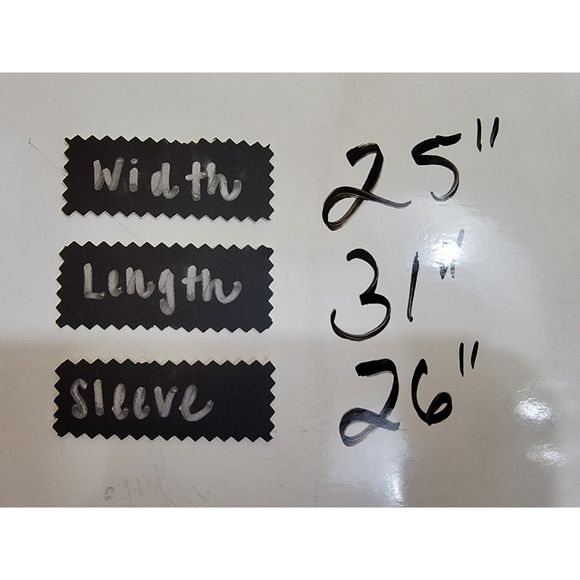 Width 25"
Length 31"
Sleeve 26"